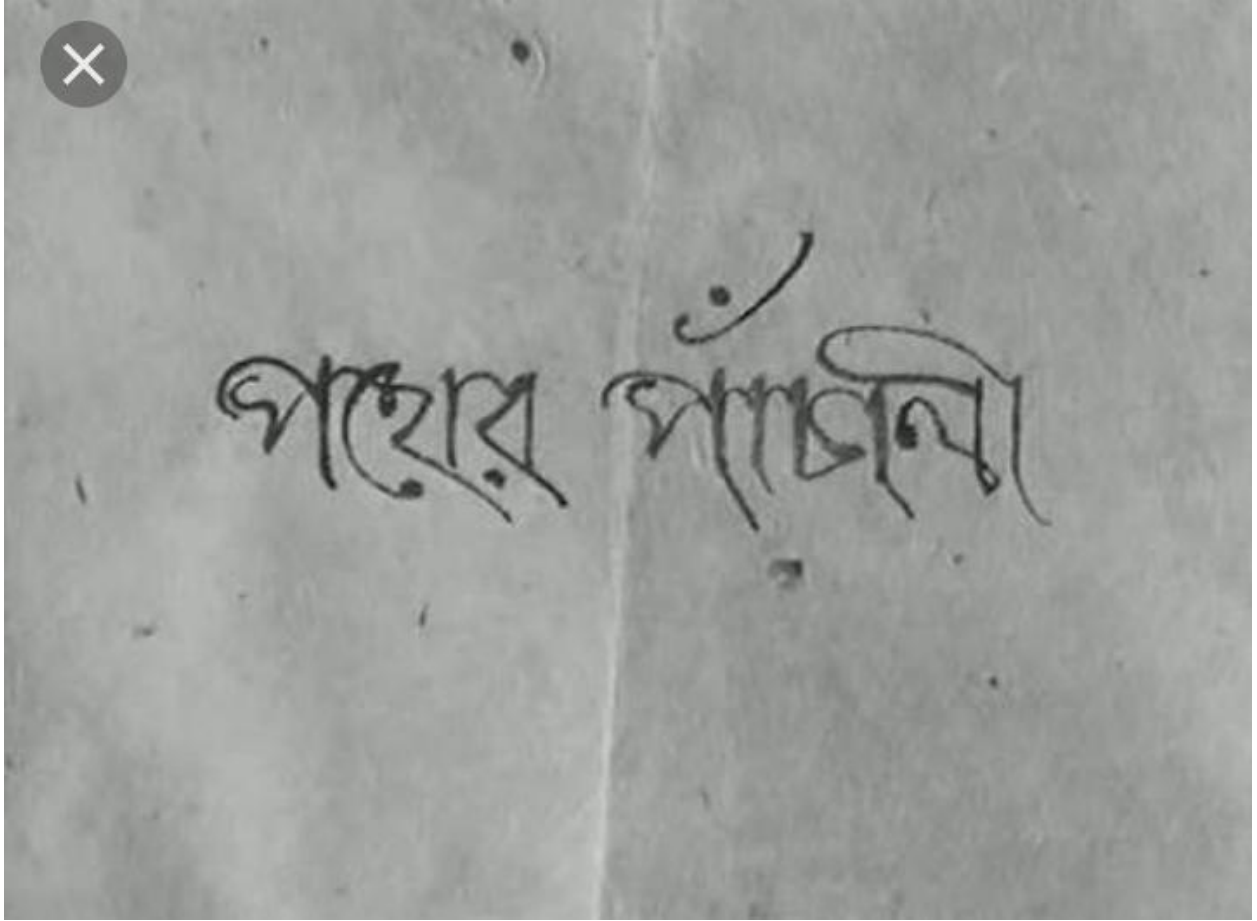 পথের পাঁচালী